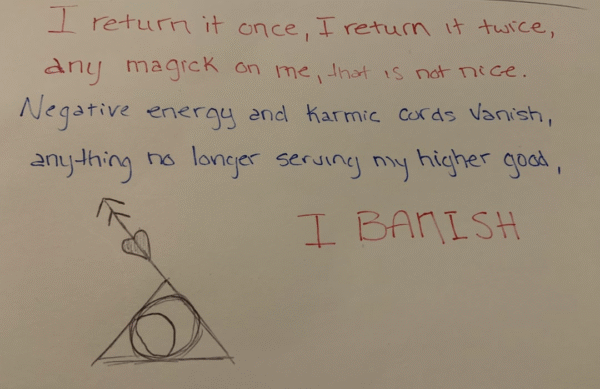 I return it once, I return it twice,
any magick on me, that is not nice.
Negative energy and Karmic cords Vanish,
anything no longer serving my higher good,
I BANISH